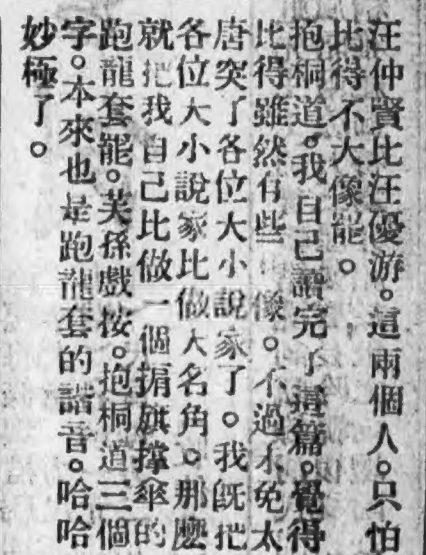 汪仲賢比汪優游。這兩個人。只怕
比得不大像罷。
抱桐道。我自己讀完了這篇。覺得
比得雖然有些 像。不過不免太
唐突了各位大小說家了。我旣把
各位大小說家比做大名角。那麽
就把我自己比做一個掮旗撑傘的
跑龍套罷。芙孫戲按。抱桐道三個
字。本來也是跑龍套的諧音。哈哈
妙極了。